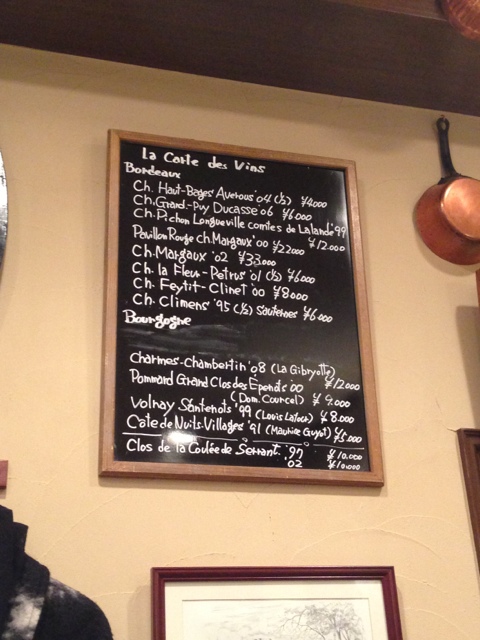 La Carte des Vins
Bordeaux
Ch. Haut-Bages Averous '04 (1/2) ¥4000
Ch. Grand-Puy Ducasse '06 ¥6000
Ch. Pichon Longueville comtes de Lalande '99 ¥12.000
Pavillon Rouge ch. Margaux '00 ¥22000
Ch. Margaux '02 ¥33000
Ch. la Fleur-Petrus '01 (1/2) ¥6000
Ch. Feytit-Clinet '00 ¥8000
Ch. Climens '95 (1/2) Sauternes ¥6000
Bourgogne
Charmes-Chambertin '08 (La Gibryotte) ¥12000
Pommard Grand Clos des Épenots '00
(Dom. Courcel) ¥9.000
Volnay Santenots '99 (Louis Latour) ¥8.000
Cote de Nuits-Villages '91 (Maurice Guyot) ¥5.000
Clos de la Coulée de Serrant '97 ¥10.000
'02 ¥10.000